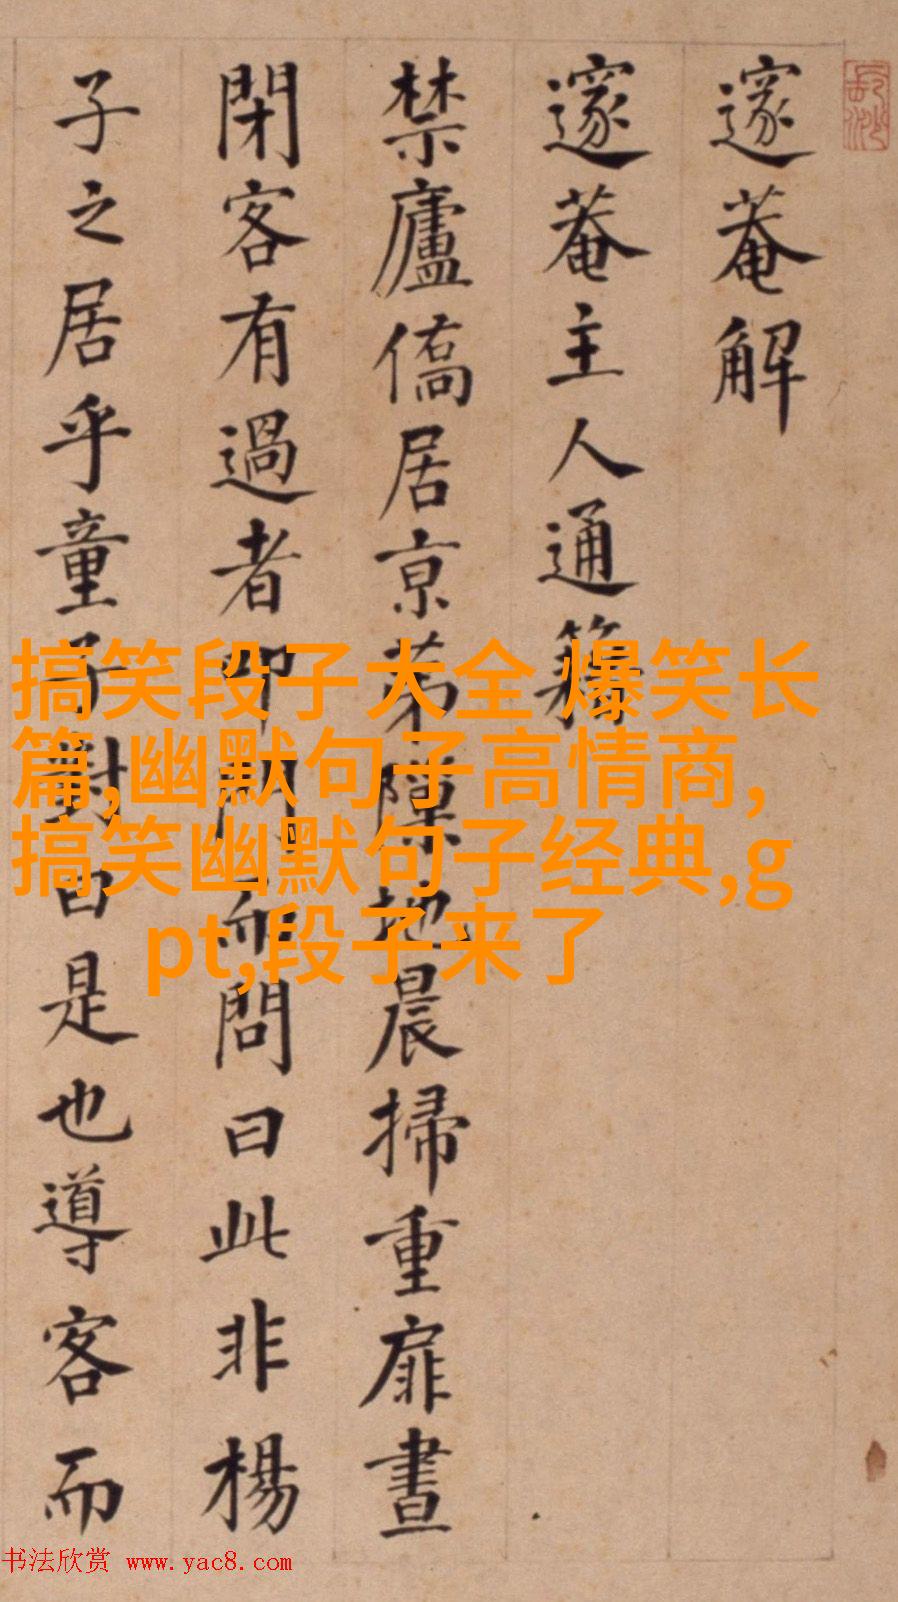 邃菴解
邃菴主人通籍
禁廬僑居京苐隙地晨掃重扉晝
閉客有過者叩門而問曰此非楊
子之居乎童子對曰是也導客而
搞笑段子大全 爆笑长
篇,幽默句子高情商,
搞笑幽默句子经典,g
pt,段子来了
书法欣赏 www.yac8.com